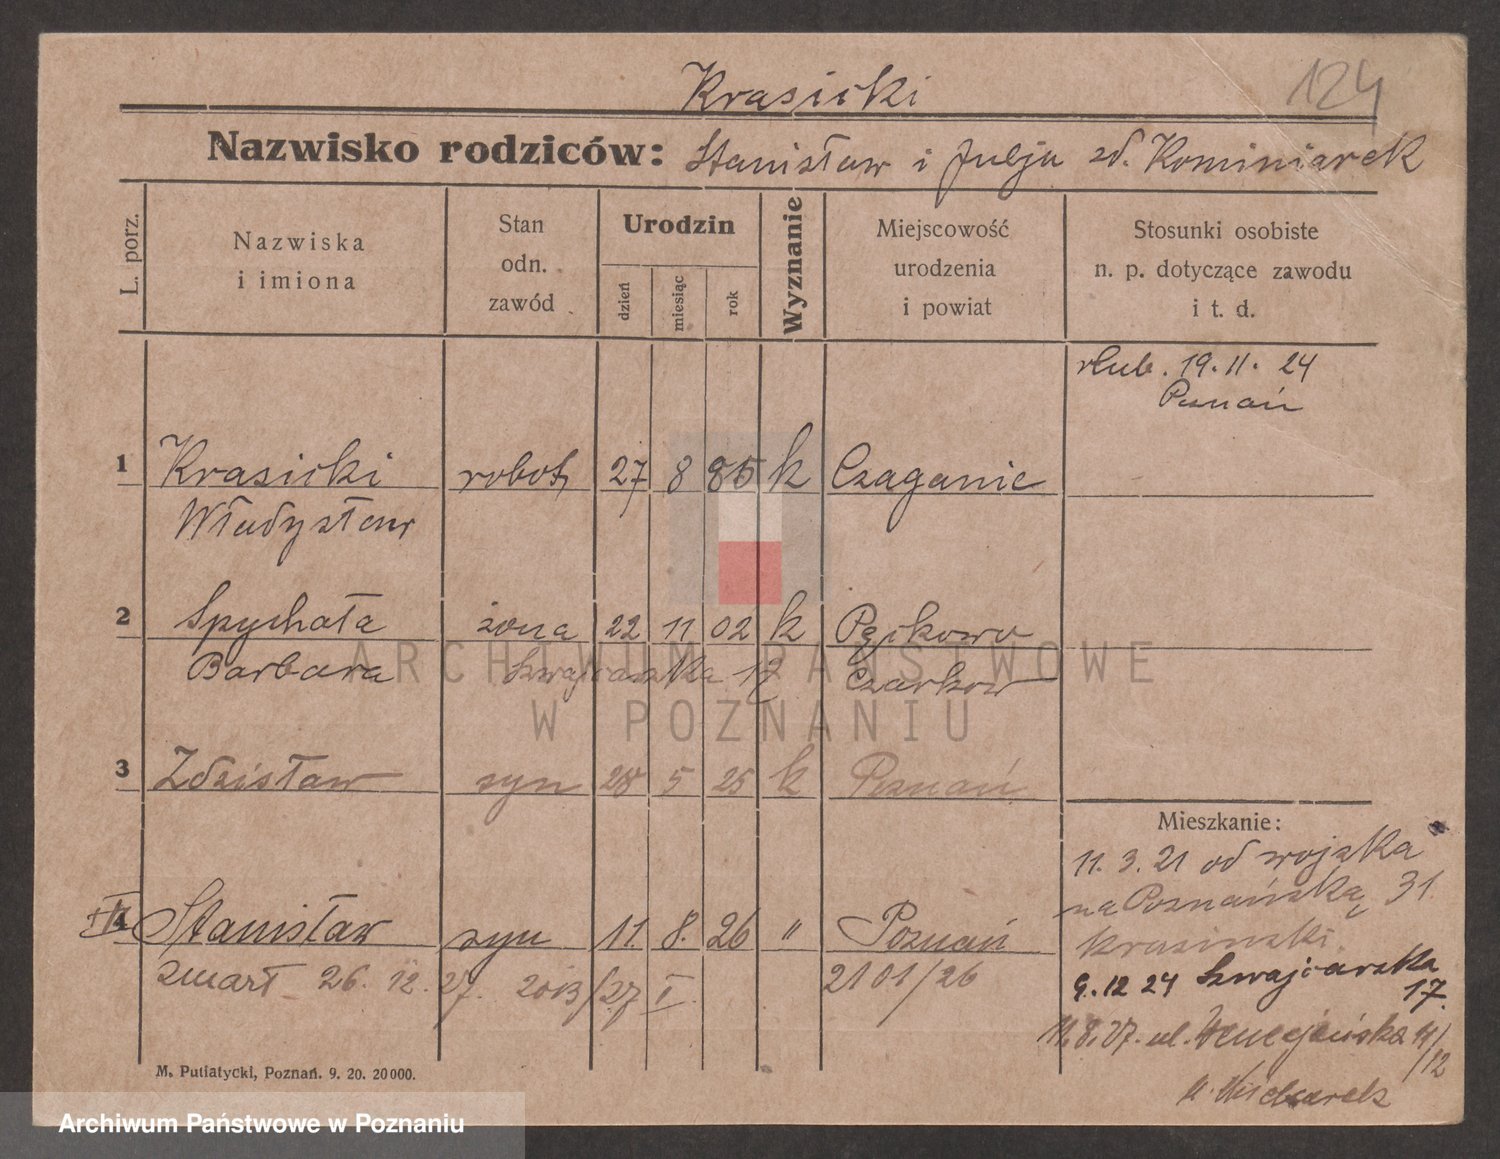 Krasicki
124
Nazwisko rodziców: Stanisław i Julja zd. Kominiarek
L. porz.
Nazwiska
i imiona
Stan
odn.
zawód
Urodzin
dzień
miesiąc
rok
Wyznanie
Miejscowość
urodzenia
i powiat
Stosunki osobiste
n. p. dotyczące zawodu
i t. d.
ślub. 19. 11. 24
Poznań
1 Krasicki robot. 27 8 85 k Czaganie
Władysław
2 Spychała żona 22 11 02 k
Barbara Szwajcarska 17 Czarkow
3 Zdzisław syn 28 5 25 k Poznań
4 Stanisław syn 11. 8. 26 " Poznań
zmarł 26. 12. 27. 2013/27 I 2101/26
Mieszkanie:
11. 3. 21 od wojska
na Poznańską 31.
Krasinski
9. 12 24 Szwajcarska
17.
11. 8. 27. ul. Wenecjańska 11/
/12
M. Putiatycki, Poznań. 9. 20. 20000.
ARCHIWUM PAŃSTWOWE
W POZNANIU
Archiwum Państwowe w Poznaniu